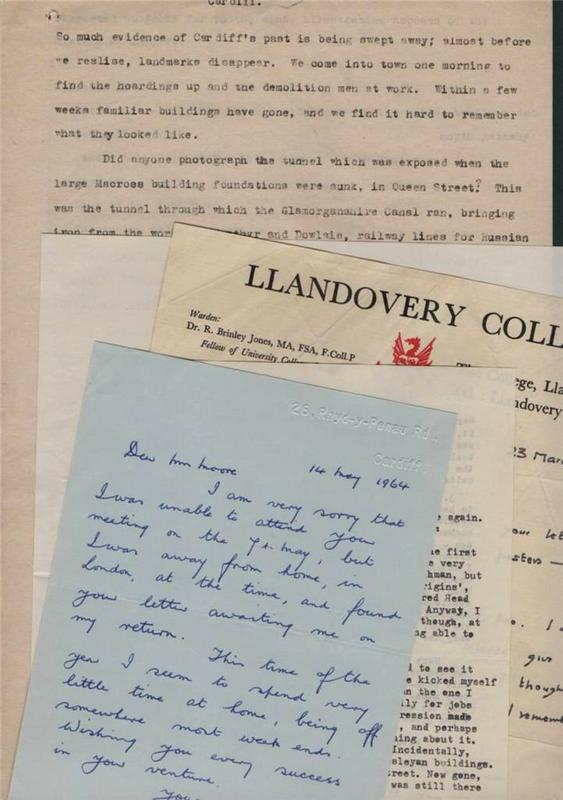 Cardiff.
So much evidence of Cardiff's past is being swept away; almost before
we realise, landmarks disappear. We come into town one morning to
find the hoardings up and the demolition men at work. Within a few
weeks familiar buildings have gone, and we find it hard to remember
what they looked like.
Did anyone photograph the tunnel which was exposed when the
large Macross building foundations were sunk, in Queen Street? This
was the tunnel through which the Glamorganshire Canal ran, bringing
iron from the and Dowlais, railway lines for Russian
LLANDOVERY COLL
Warden:
Dr. R. Brinley Jones, MA, FSA, F.Coll.P
Fellow of University
ege, Lla
ndovery
23 Mar
26, Rhyd-y-Penau Rd.
Cardiff.
Dear Mrs Moore 14 May 1964
I am very sorry that
I was unable to attend your
meeting on the 7th May, but
I was away from home, in
London, at the time, and found
your letter awaiting me on
my return. This time of the
year I seem to spend very
little time at home, being off
somewhere most week ends.
Wishing you every success
in your venture.
again.
e first
e very
hman, but
rigins',
red Head
Anyway, I
though, at
ng able to
d to see it
e kicked myself
n the one I
ly for jobs
ression made
, and perhaps
ning about it.
Incidentally,
sleyan buildings.
reet. Now gone,
was still there
our let
sters —
. I
give
though
remem